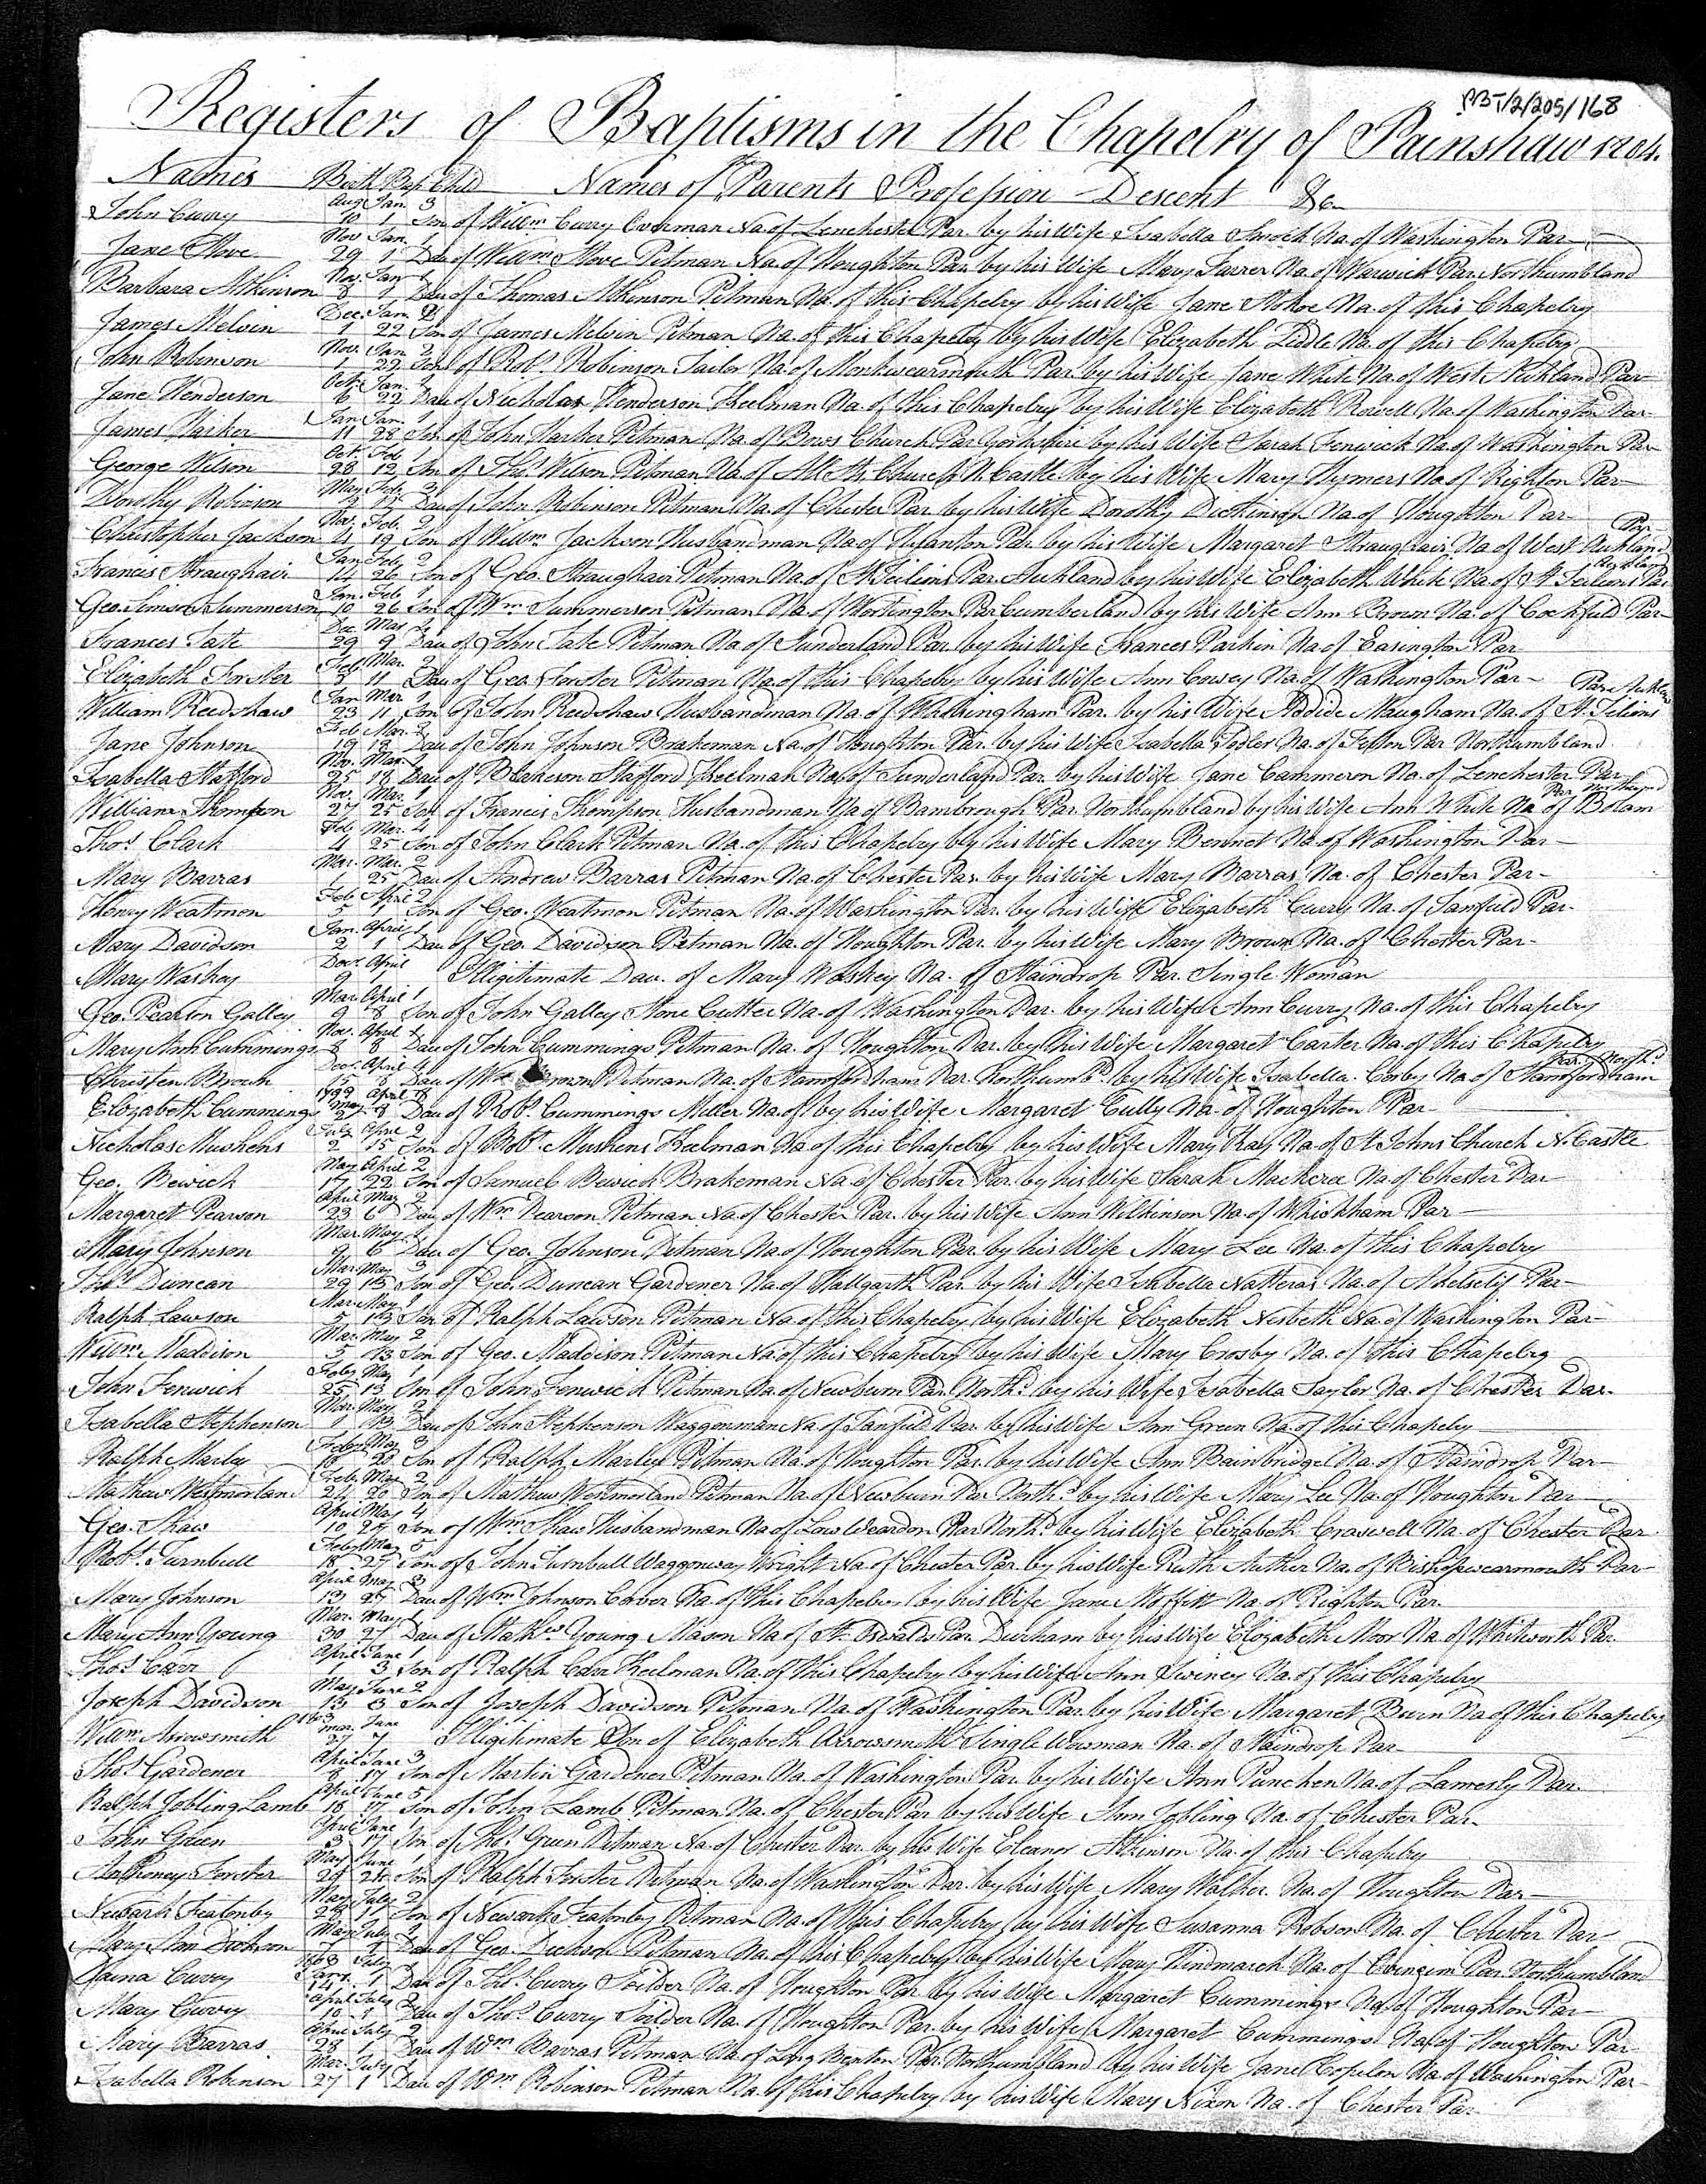 DBT/2/205/168
Registers of Baptisms in the Chapelry of Painshaw 1804.
Names Birth Bap. Child Names of the Parents Profession Descent &c
Aug Jan. 3
John Curry 10 1 Son of Willm Curry Overman Na. of Lenchester Par. by his Wife Isabella Na. of Washington Par.
Nov Jan. 1
Jane Hove 29 1 Dau of Willm Hove Pitman Na. of Houghton Par. by his Wife Mary Farrer Na. of Warwick Par. Northumbland
Nov. Jan 1
Barbara Atkinson 8 1 Dau of Thomas Atkinson Pitman Na. of this Chapelry by his Wife Jane Na. of this Chapelry
Dec. Jan.
James Melvin 1 22 Son of James Melvin Pitman Na. of this Chapelry by his Wife Elizabeth Liddle Na. of this Chapelry
Nov. Jan 2
John Robinson 1 22 Son of Robt. Robinson Tailor Na. of Monkwearmouth Par. by his Wife Jane White Na. of West Aukland Par
Oct. Jan. 1
Jane Henderson 6 22 Dau of Nicholas Henderson Keelman Na. of this Chapelry by his Wife Elizabeth Rowell Na. of Washington Par
Jan Jan. 1
James Harker 11 28 Son of John Harker Pitman Na. of Bows Church Par Yorkshire by his Wife Sarah Fenwick Na. of Washington Par
Oct. Feb 1
George Wilson 28 12 Son of Thos. Wilson Pitman Na. of All Sts. Church N. Castle by his Wife Mary Hymers Na. of Righton Par
May Feb. 3
Dorothy Robinson 12 Dau of John Robinson Pitman Na. of Chester Par. by his Wife Dorothy Dickinson Na. of Houghton Par
Nov. Feb. 2 Par
Christopher Jackson 21 19 Son of Willm Jackson Husbandman Na. of Par. by his Wife Margaret Straughair Na. of West Aukland
Jan Feb 2 Aukland
Francis Straughair 14 26 Son of Geo. Straughair Pitman Na. of St. Par. Aukland by his Wife Elizabeth White Na. of St. Par
Jan. Feb 1
Geo. Summerson 10 26 Son of Wm. Summerson Pitman Na. of Workington Par Cumberland by his Wife Ann Brown Na. of Cockfield Par
Dec. Mar 4
Frances Tate 29 9 Dau of John Tate Pitman Na of Sunderland Par by his Wife Frances Parkin Na of Easington Par
Feb. Mar. 2
Elizabeth Forster 5 11 Dau of Geo Forster Pitman Na. of this Chapelry by his Wife Ann Cowey Na. of Washington Par Par. Aukland
Jan Mar 1
William Reedshaw 23 11 Son of John Reedshaw Husbandman Na. of Par. by his Wife Maugham Na. of St.
Feb Mar. 1
Jane Johnson 19 18 Dau of John Johnson Brakeman Na. of Houghton Par. by his Wife Isabella Na. of Felton Par Northumbland
Nov. Mar.
Isabella Stafford 25 18 Dau of Blakeson Stafford Keelman Na. of Sunderland Par. by his Wife Jane Cammeron Na. of Lenchester Par
Nov. Mar. 1
William Thompson 27 25 Son of Francis Thompson Husbandman Na of Bambrough Par. Northumbland by his Wife Ann White Na of Bolam
Feb Mar. 4
Thos. Clark 4 25 Son of John Clark Pitman Na. of this Chapelry by his Wife Mary Bennet Na. of Washington Par
Mar. Mar. 2
Mary Barras 1 25 Dau of Andrew Barras Pitman Na of Chester Par by his Wife Mary Barras Na. of Chester Par
Feb April 2
Henry Weatmon 5 1 Son of Geo. Weatmon Pitman Na. of Washington Par. by his Wife Elizabeth Curry Na. of Tanfield Par.
Jan. April 1
Mary Davidson 2 1 Dau of Geo. Davidson Pitman Na. of Houghton Par. by his Wife Mary Brown Na. of Chester Par.
Decr. April
Mary Waskey 9 1 Illigitimate Dau. of Mary Waskey Na. of Staindrop Par. Single Woman
Mar. April 1
Geo. Pearson Galley 9 8 Son of John Galley Stone Cutter Na. of Washington Par. by his Wife Ann Curry Na. of this Chapelry
Nov. April 1
Mary Ann Cummings 8 8 Dau of John Cummings Pitman Na. of Houghton Par. by his Wife Margaret Carter Na. of this Chapelry
Decr. April 4 Par. Northd
Christen Brown 15 8 Dau of Wm Brown Pitman Na. of Stamfordham Par. Northumbd. by his Wife Isabella Corby Na. of Stamfordham
1799 April 8
Elizabeth Cummings May 27 8 Dau of Robt. Cummings Miller Na. of by his Wife Margaret Tully Na. of Houghton Par
July April 2
Nicholas Mushens 2 15 Son of Robt. Mushens Keelman Na. of this Chapelry by his Wife Mary Kay Na. of St. Johns Church N. Castle
May April 2
Geo. Bewick 17 22 Son of Samuel Bewick Brakeman Na. of Chester Par. by his Wife Sarah Mackcree Na of Chester Par
April May 2
Margaret Pearson 23 6 Dau of Wm. Pearson Pitman Na. of Chester Par. by his Wife Ann Wilkinson Na of Whickham Par
Mar. May. 1
Mary Johnson 9 6 Dau of Geo. Johnson Pitman Na of Houghton Par. by his Wife Mary Lee Na. of this Chapelry
Mar. May 3
Thos. Duncan 29 13 Son of Geo. Duncan Gardener Na. of Hallgarth Par. by his Wife Isabella Nattras Na. of Par
Mar. May 1
Ralph Lawson 5 13 Son of Ralph Lawson Pitman Na. of this Chapelry by his Wife Elizabeth Nesbeth Na. of Washington Par
Mar May 2
Willm. Maddison 5 13 Son of Geo. Maddison Pitman Na. of this Chapelry by his Wife Mary Crosby Na. of this Chapelry
Feby May 1
John Fenwick 25 13 Son of John Fenwick Pitman Na. of Newburn Par. Northd. by his Wife Isabella Taylor Na. of Chester Par.
Mar. May. 2
Isabella Stephenson 1 13 Dau of John Stephenson Waggonman Na of Tanfield Par. by his Wife Ann Green Na. of this Chapelry
Feby May 3
Ralph Marley 16 20 Son of Ralph Marley Pitman Na. of Houghton Par. by his Wife Ann Bainbridge Na. of Staindrop Par
Feb. May 2
Mathew Westmorland 24 20 Son of Mathew Westmorland Pitman Na of Newburn Par Northd. by his Wife Mary Lee Na. of Houghton Par
April May 4
Geo. Shaw 10 27 Son of Wm. Shaw Husbandman Na. of Low Par Northd. by his Wife Elizabeth Craswell Na. of Chester Par
Feby May 5
Robt. Turnbull 18 27 Son of John Turnbull Waggonway Wright Na. of Chester Par. by his Wife Ruth Na. of Bishopwearmouth Par
April May 3
Mary Johnson 13 27 Dau of Wm Johnson Na. of this Chapelry by his Wife Jane Moffitt Na. of Righton Par.
Mar. May 1
Mary Ann Young 30 27 Dau of Mathw. Young Mason Na of St. Oswalds Par. Durham by his Wife Elizabeth Moor Na. of Whitworth Par.
April June 1
Thos. Carr 1 3 Son of Ralph Carr Keelman Na. of this Chapelry by his Wife Ann Swiney Na. of this Chapelry
May June 2
Joseph Davidson 13 3 Son of Joseph Davidson Pitman Na. of Washington Par by his Wife Margaret Burn Na of this Chapelry
1803 Mar. June
Willm. Arrowsmith 27 7 Illigitimate Son of Elizabeth Arrowsmith Single Wowman Na. of Staindrop Par
April June 3
Thos. Gardener 8 17 Son of Martin Gardener Pitman Na. of Washington Par. by his Wife Ann Punchen Na. of Lamesly Par.
April June 5
Ralph Jobling Lamb 18 17 Son of John Lamb Pitman Na. of Chester Par by his Wife Ann Jobling Na. of Chester Par.
April June 1
John Green 3 17 Son of Thos. Green Pitman Na. of Chester Par. by his Wife Eleanor Atkinson Na. of this Chapelry
May June 1
Anthoney Forster 29 24 Son of Ralph Forster Pitman Na. of Washington Par. by his Wife Mary Walker Na. of Houghton Par
May July 2
Newark Featonby 29 1 Son of Newark Featonby Pitman Na. of this Chapelry by his Wife Susanna Robson Na. of Chester Par
May July
Mary Ann Dickson 7 1 Dau of Geo. Dickson Pitman Na. of this Chapelry by his Wife Mary Hindmarch Na. of Par. Northumbland
July
Jaina Curry 1 Dau of Thos. Curry Na. of Houghton Par by his Wife Margaret Cummings Na. of Houghton Par
April July 2
Mary Curry 19 1 Dau of Thos. Curry Na. of Houghton Par. by his Wife Margaret Cummings Na. of Houghton Par
April July 2
Mary Barras 28 1 Dau of Wm Barras Pitman Na of Long Benton Par. Northumbland by his Wife Jane Copelon Na. of Washington Par
Mar. July 1
Isabella Robinson 27 1 Dau of Wm. Robinson Pitman Na. of this Chapelry by his Wife Mary Nixon Na. of Chester Par